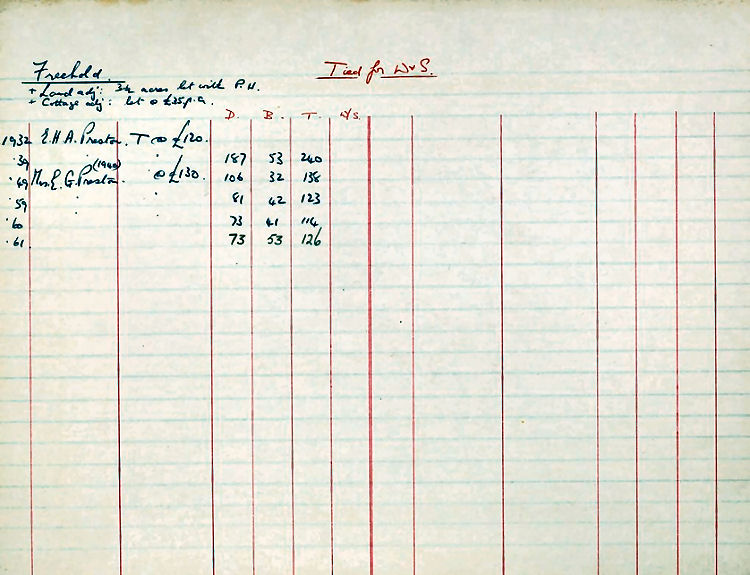 Freehold. Tied for W & S.
+ Land adj: 3¼ acres let with P.H.
+ Cottage adj: let @ £35 p.a.
D. B. T. W/S.
1932 E.H.A. Preston. T @ £120.
'39 " " 187 53 240
'49 Mrs. E. G. Preston (1940). @ £130. 106 32 138
'59 " " 81 42 123
'60 73 41 114
'61. 73 53 126